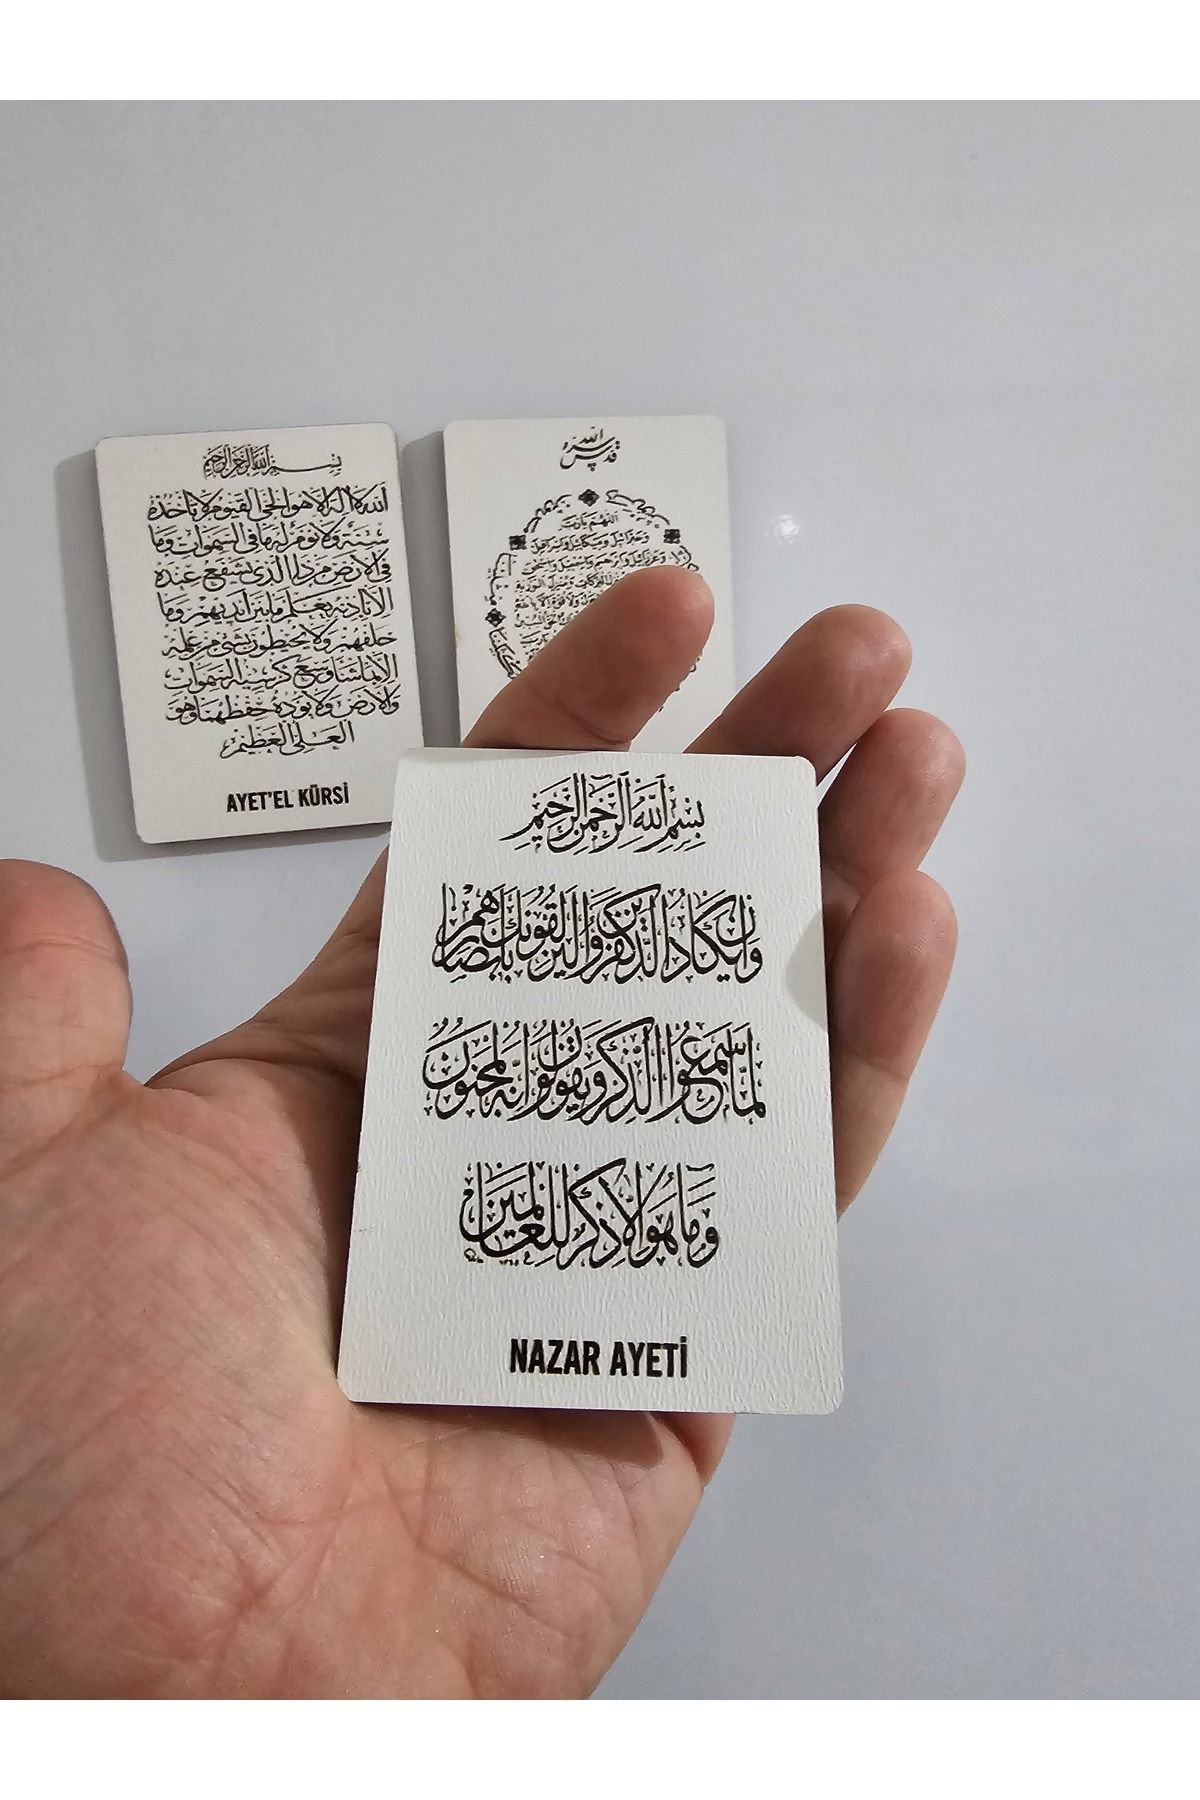 بسم الله الرحمن الرحيم
الله لا اله الا هو الحي القيوم لا تأخذه
سنة ولا نوم له ما في السموات وما
في الارض من ذا الذي يشفع عنده
الا باذنه يعلم ما بين ايديهم وما
خلفهم ولا يحيطون بشئ من علمه
الا بما شاء وسع كرسيه السموات
والارض ولا يؤده حفظهما وهو
العلي العظيم
AYET'EL KÜRSİ
الله
قدس سره
اللهم يا رب
وجبرائيل وميكائيل واسرافيل
وعزرائيل وابرهيم واسمعيل واسحق
بِسْمِ اللّٰهِ الرَّحْمٰنِ الرَّحِيمِ
وَاِنْ يَكَادُ الَّذِينَ كَفَرُوا لَيُزْلِقُونَكَ بِاَبْصَارِهِمْ
لَمَّا سَمِعُوا الذِّكْرَ وَيَقُولُونَ اِنَّهُ لَمَجْنُونٌ
وَمَا هُوَ اِلَّا ذِكْرٌ لِلْعَالَمِينَ
NAZAR AYETİ